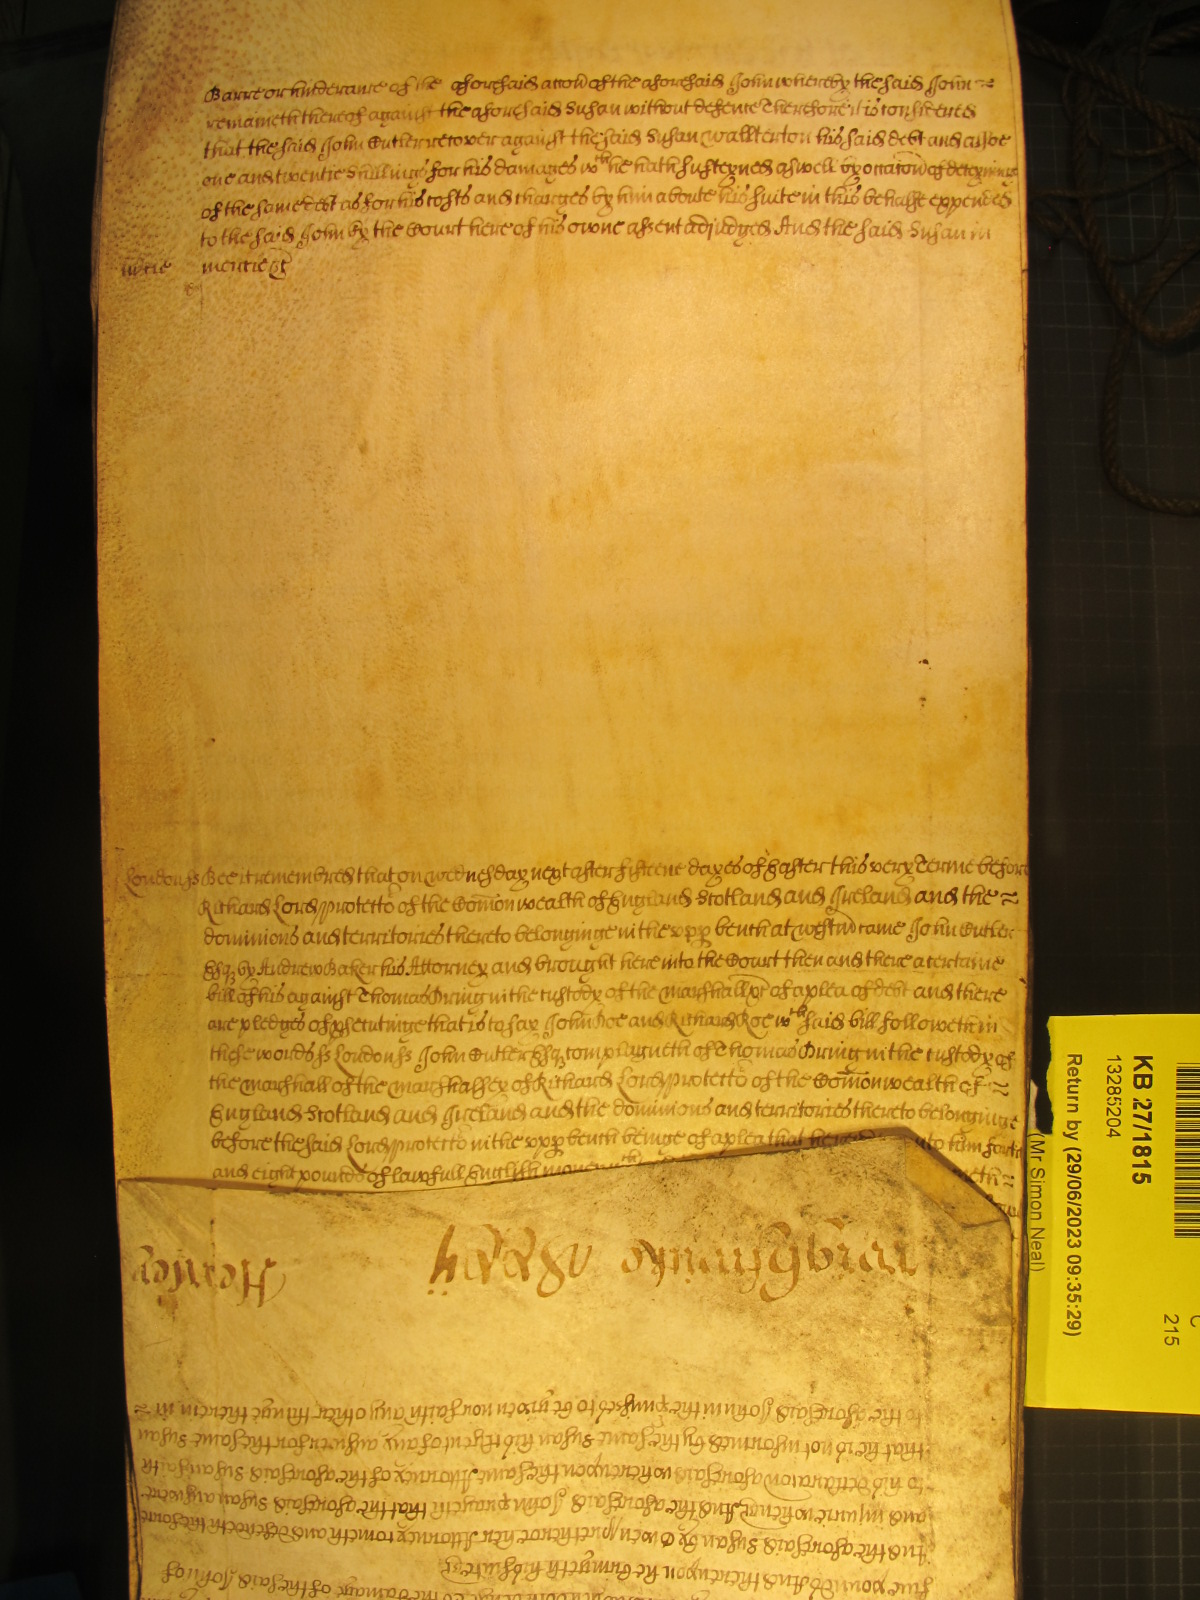 Barre or hinderance of the aforesaid accon of the aforesaid John whereby the said John
remaineth thereof against the aforesaid Susan without defence Therefore it is considered
that the said John Cutler recover against the said Susan Wallterton his said debt and alsoe
one and twentie shillings for his damages wch he hath susteyned aswell by occacon of deteyninge
of the same debt as for his costs and charges by him aboute his suite in this behalfe expended
to the said John by the Court here of his owne assent adjudged And the said Susan in
mercie &c
mcie
London ss Bee it remembred that on wednesday next after fifteene dayes of Easter this very Terme before
Richard Lord protector of the Comon wealth of England Scotland and Ireland and the
dominions and territories thereto belonginge in the upp bench at westm came John Cutler
Esq by Andrew Baker his Attorney and brought here into the Court then and there a certaine
bill of his against Thomas Dring in the custody of the marshall &c of a plea of debt and there
are pledges of psecutinge that is to say John Doe and Richard Roe wch said bill followeth in
these words ss London ss John Cutler Esq complayneth of Thomas Dring in the custody of
the marshall of the marshalsey of Richard Lord protector of the Comon wealth of
England Scotland and Ireland and the dominions and territories thereto belonginge
before the said Lord protector in the upp bench beinge of a plea that he to him fortie
and eight pounds of lawfull English money
KB 27/1815
13285204
Return by (29/06/2023 09:35:29)
(Mr Simon Neal)
C
215
five pounds And thereupon he bringeth his suite &c
And the aforesaid Susan by Owen her Attorney cometh and defendeth the force
and injurie when &c And the aforesaid John prayeth that the aforesaid Susan answere
to his declaration aforesaid whereupon the same Attorney of the aforesaid Susan saith
that he is not informed by the same Susan his Clyent of any answer for the same Susan
to the aforesaid John in the pmisses to be given nor saith any other thinge therein in